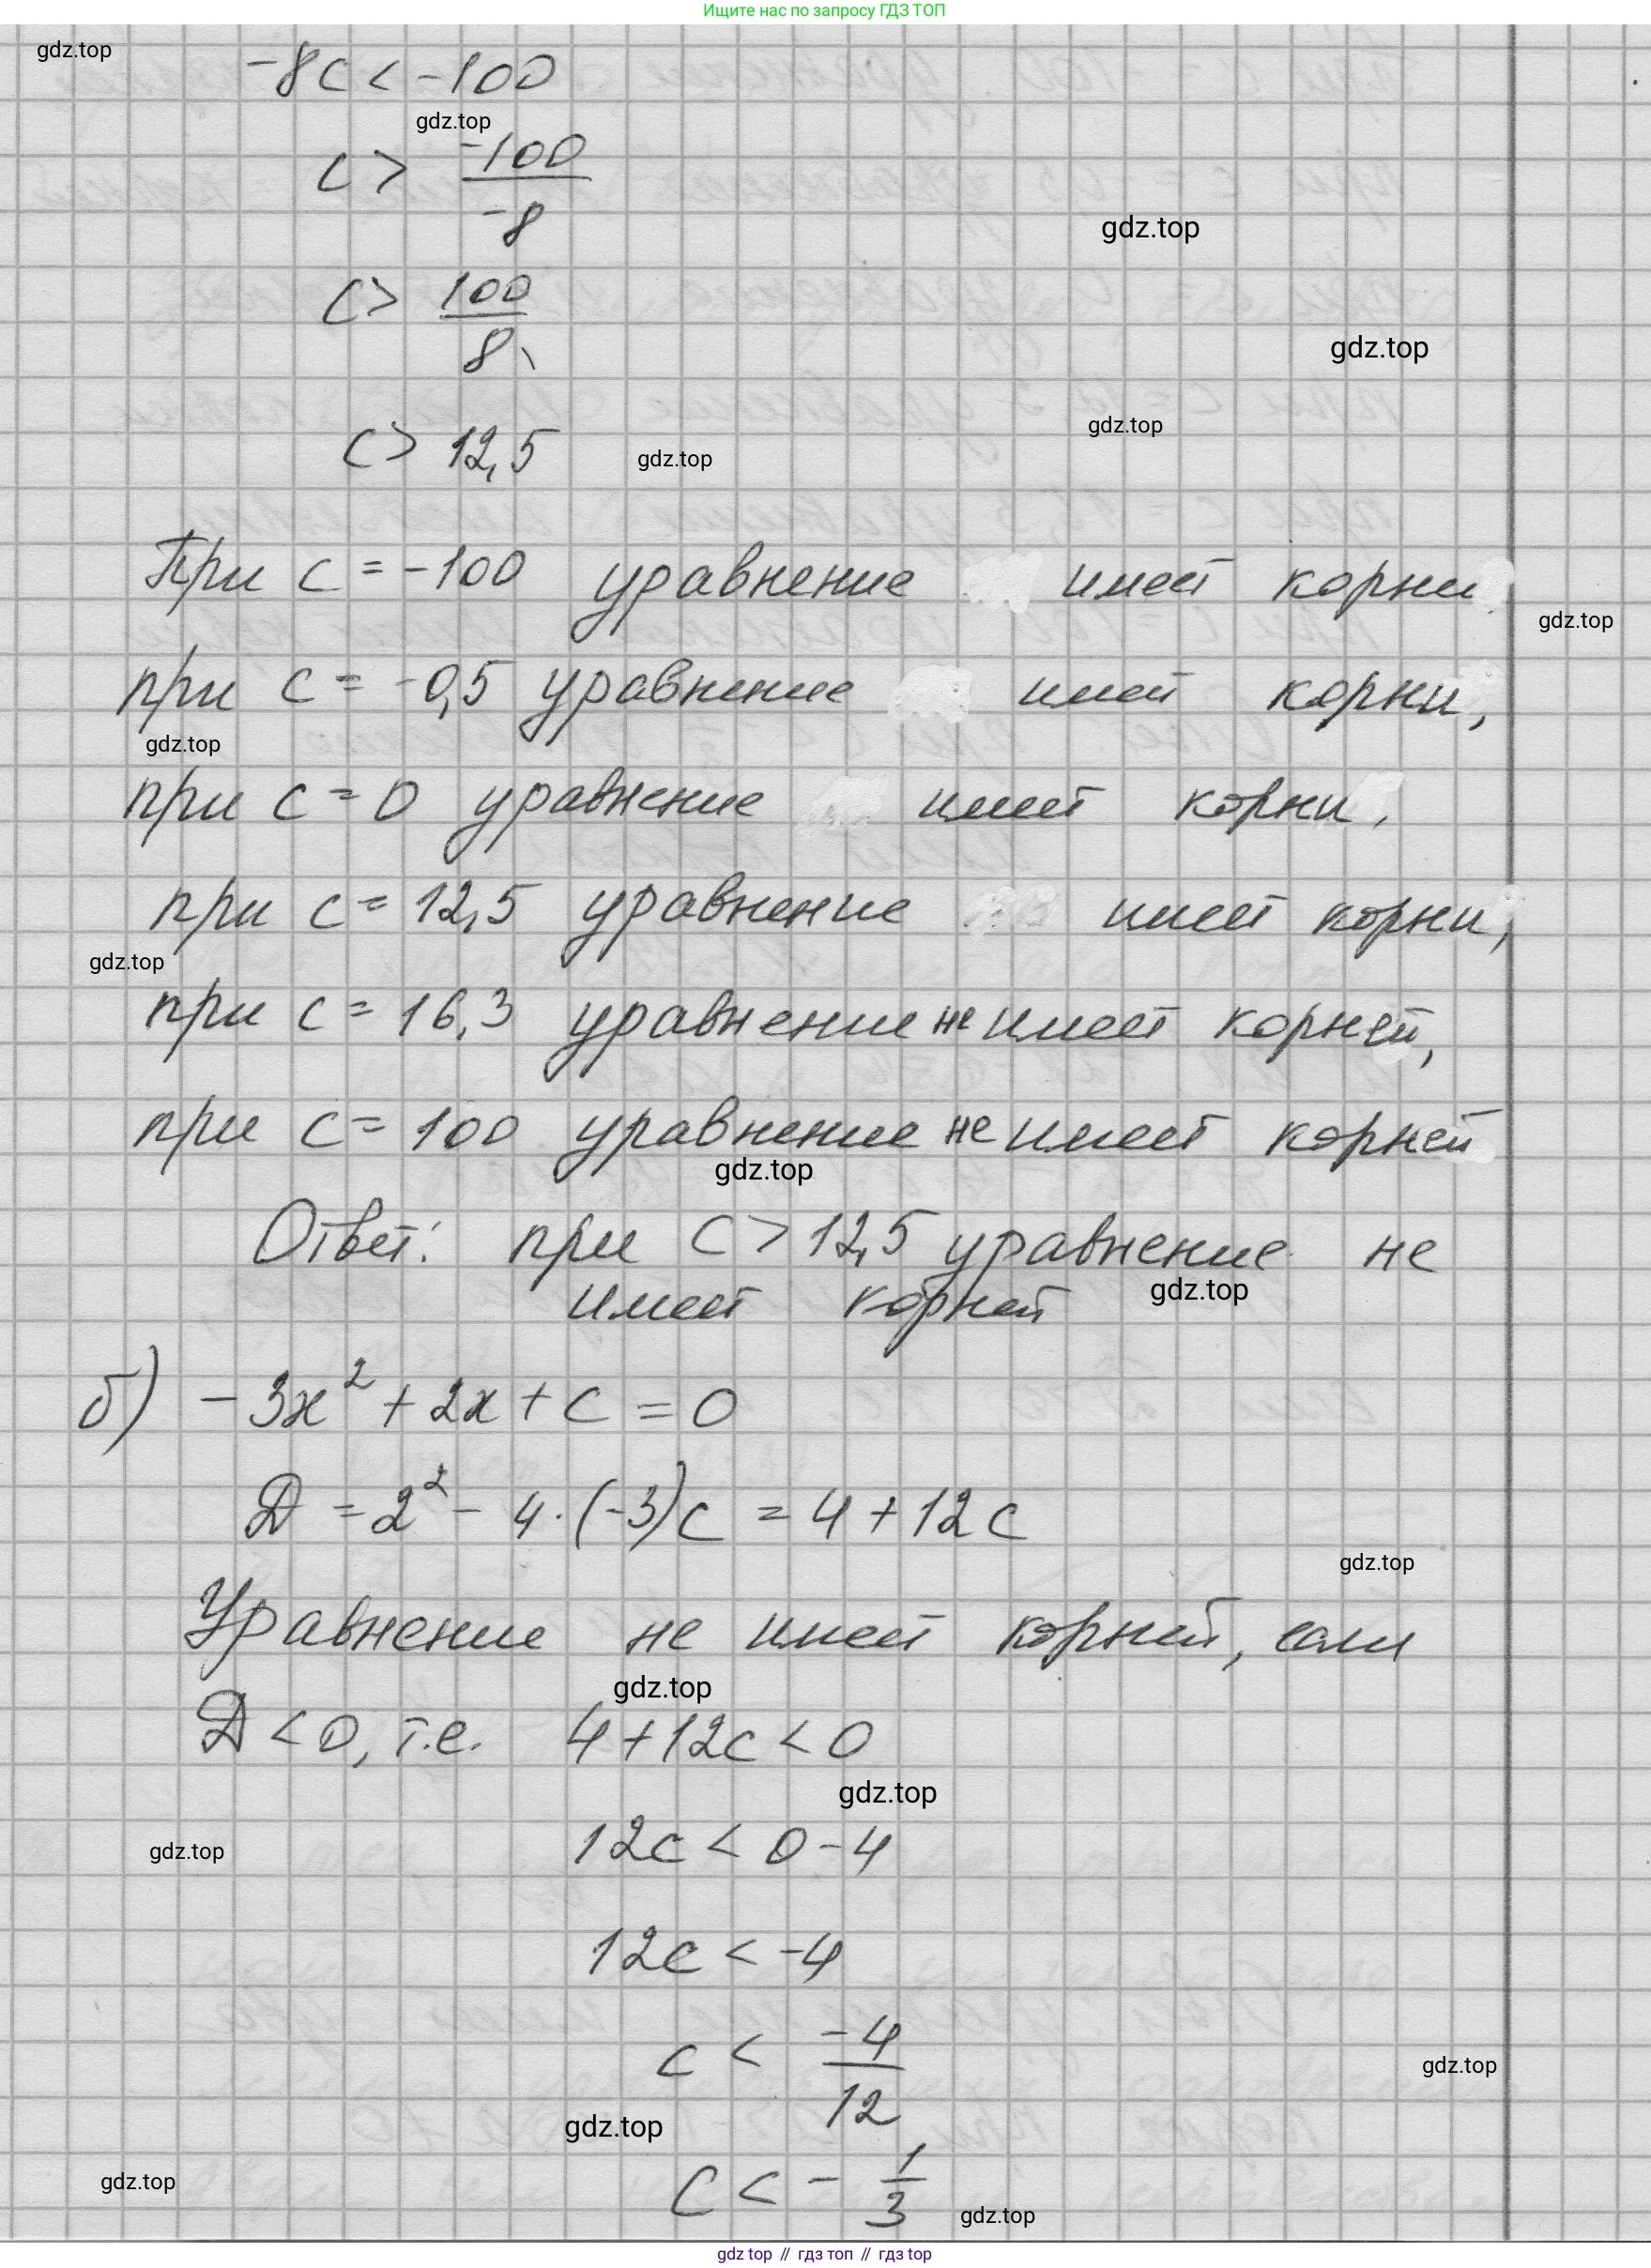 Ищите нас по запросу ГДЗ ТОП
gdz.top
-8c < -100
gdz.top
c > -100/-8
gdz.top
c > 100/8
gdz.top
gdz.top
c > 12,5
gdz.top
При c = -100 уравнение имеет корни
gdz.top
при c = -0,5 уравнение имеет корни,
gdz.top
при c = 0 уравнение имеет корни,
при c = 12,5 уравнение имеет корни,
gdz.top
при c = 16,3 уравнение не имеет корней,
при c = 100 уравнение не имеет корней
gdz.top
Ответ: при c > 12,5 уравнение не
имеет корней
gdz.top
б) -3x² + 2x + c = 0
D = 2² - 4·(-3)c = 4 + 12c
gdz.top
Уравнение не имеет корней, если
gdz.top
D < 0, т.е. 4 + 12c < 0
gdz.top
12c < 0 - 4
gdz.top
12c < -4
c < -4/12
gdz.top
gdz.top
c < - 1/3
gdz.top
gdz.top
gdz top // гдз топ // gdz top